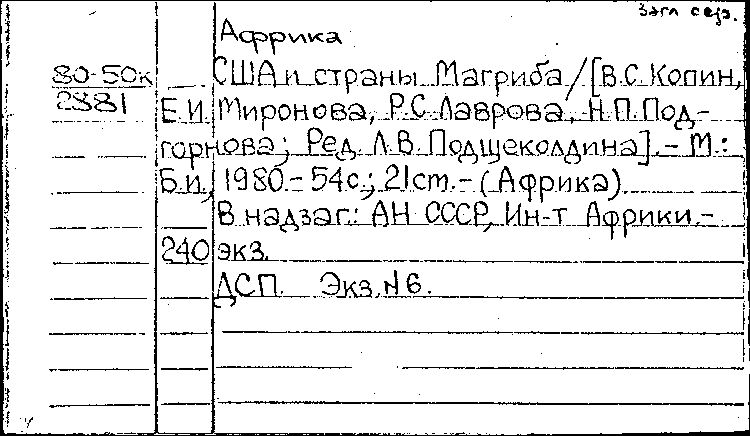 Загл сер.
Африка
80-50к США и страны Магриба/[В.С.Копин,
2881 Е.И. Миронова, Р.С.Лаврова, Н.П.Под-
горнова; Ред. Л.В. Подщеколдина].-М.:
Б.и., 1980.-54с.; 21cm.-(Африка)
В надзаг.: АН СССР, Ин-т Африки.-
240 экз.
ДСП. Экз.№6.